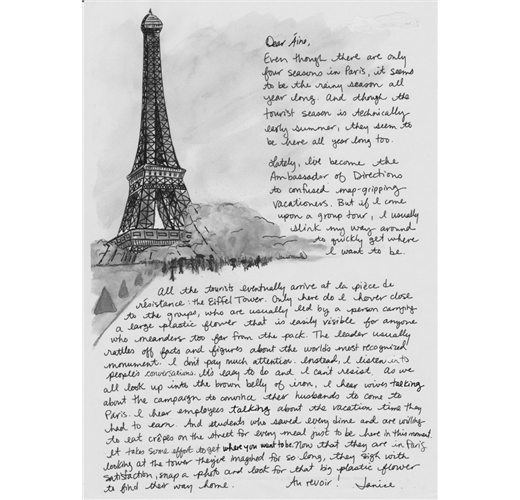 Dear Áine,
Even though there are only
four seasons in Paris, it seems
to be the rainy season all
year long. And though the
tourist season is technically
early summer, they seem to
be here all year long too.
Lately, I've become the
Ambassador of Directions
to confused map-gripping
vacationers. But if I come
upon a group tour, I usually
slink my way around
to quickly get where
I want to be.
All the tourists eventually arrive at la pièce de
résistance: the Eiffel Tower. Only here do I hover close
to the groups, who are usually led by a person carrying
a large plastic flower that is easily visible for anyone
who meanders too far from the pack. The leader usually
rattles off facts and figures about the world's most recognized
monument. I don't pay much attention. Instead, I listen into
people's conversations. It's easy to do and I can't resist. As we
all look up into the brown belly of iron, I hear wives talking
about the campaign to convince their husbands to come to
Paris. I hear employees talking about the vacation time they
had to earn. And students who saved every dime and are willing
to eat crêpes on the street for every meal just to be here in this moment.
It takes some effort to get where you want to be. Now that they are in Paris
looking at the tower they've imagined for so long, they sigh with
satisfaction, snap a photo and look for that big plastic flower
to find their way home.
Au revoir! Janice